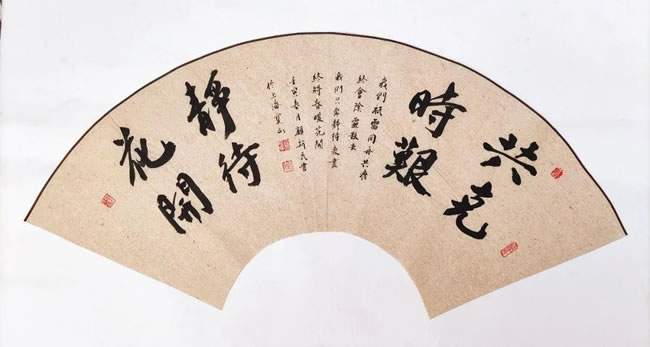 共克
時艱
我們祇需同舟共濟
終會除散去
我們只需靜待夜盡
終將春暖花開
壬寅春月顧民書
於上海寶山
靜待
花開